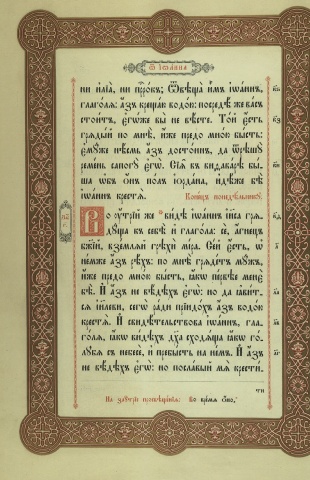 Ѿ Іѡа́нна
ни и҆лїа̀, ни прⷪ҇ро́къ; Ѿвѣща̀ и҆̀мъ і҆ѡа́ннъ,
глаго́лѧ: а҆́зъ креща́ю водо́ю: посредѣ́ же ва́съ
стои́тъ, є҆гѡ́же вы̀ не вѣ́сте. То́й є҆́сть
грѧды́й по мнѣ̀, и҆́же предо мно́ю бы́сть:
є҆мꙋ́же нѣ́смь а҆́зъ досто́инъ, да ѿрѣшꙋ̀
реме́нь сапогꙋ̀ є҆гѡ̀. Сїѧ̑ в̾ видава́рѣ бы́-
ша ѡ҆б̾ ѡ҆́нъ по́лъ і҆ѻрда́на, и҆дѣ́же бѣ̀
і҆ѡа́ннъ крестѧ̀. Коне́цъ понедѣ́льникꙋ.
Во ᲂу҆́трїй же ви́дѣ і҆ѡа́ннъ і҆и҃са грѧ-
дꙋ́ща къ себѣ̀ и҆ глаго́ла: сѐ, а҆́гнецъ
бж҃їй, взе́млѧй грѣхѝ мі́ра. Се́й є҆́сть, ѡ҆
не́мже а҆́зъ рѣ́хъ: по мнѣ̀ грѧде́тъ мꙋ́жъ,
и҆́же предо мно́ю бы́сть, ꙗ҆́кѡ пе́рвѣе менє̀
бѣ̀. И҆ а҆́зъ не вѣ́дѣхъ є҆гѡ̀: но да ꙗ҆ви́т-
сѧ і҆и҃леви, сегѡ̀ ра́ди прїидо́хъ а҆́зъ водо́ю
крестѧ̀. И҆ свидѣ́тельствова і҆ѡа́ннъ, гла-
го́лѧ, ꙗ҆́кѡ ви́дѣхъ дх҃а сходѧ́ща ꙗ҆́кѡ го́-
лꙋбѧ съ небесѐ, и҆ пребы́сть на не́мъ. И҆ а҆́зъ
не вѣ́дѣхъ є҆гѡ̀: но посла́вый мѧ̀ крести́-
ти
На за́ѵтрїе просвѣще́нїѧ: Во вре́мѧ ѻ҆́но,